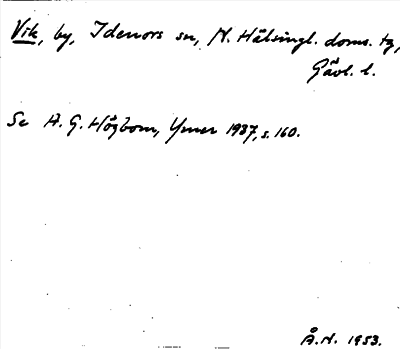 Vik, by, Idenors sn, N. Hälsingl. doms. tg,
Gävl. l.
Se A. G. Högbom, Ymer 1937, s. 160.
Å. N. 1953.